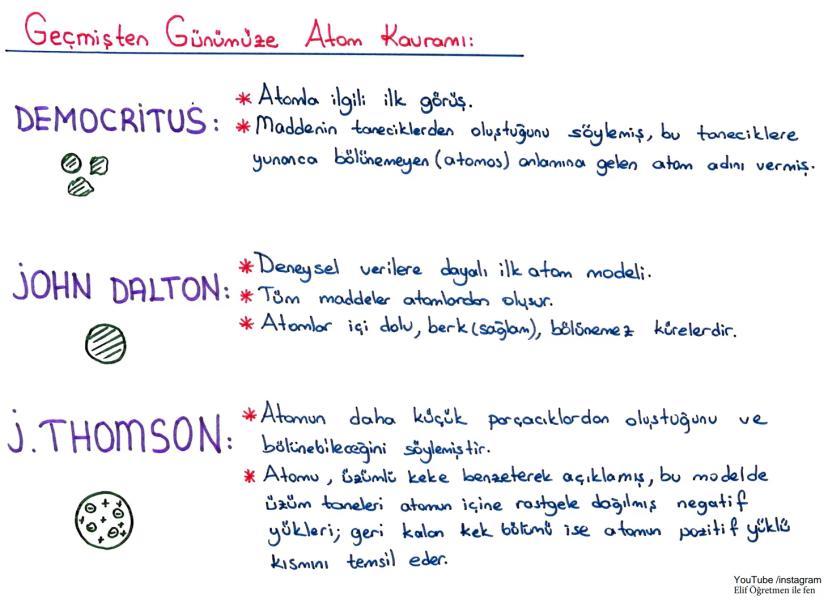 Geçmişten Günümüze Atom Kavramı:
DEMOCRİTUS:
* Atomla ilgili ilk görüş.
* Maddenin taneciklerden oluştuğunu söylemiş, bu taneciklere
yunanca bölünemeyen (atomos) anlamına gelen atom adını vermiş.
JOHN DALTON:
* Deneysel verilere dayalı ilk atom modeli.
* Tüm maddeler atomlardan oluşur.
* Atomlar içi dolu, berk (sağlam), bölünemez kürelerdir.
J. THOMSON:
* Atomun daha küçük parçacıklardan oluştuğunu ve
bölünebileceğini söylemiştir.
* Atomu, üzümlü keke benzeterek açıklamış, bu modelde
üzüm taneleri atomun içine rastgele dağılmış negatif
yükleri; geri kalan kek bölümü ise atomun pozitif yüklü
kısmını temsil eder.
YouTube /instagram
Elif Öğretmen ile fen